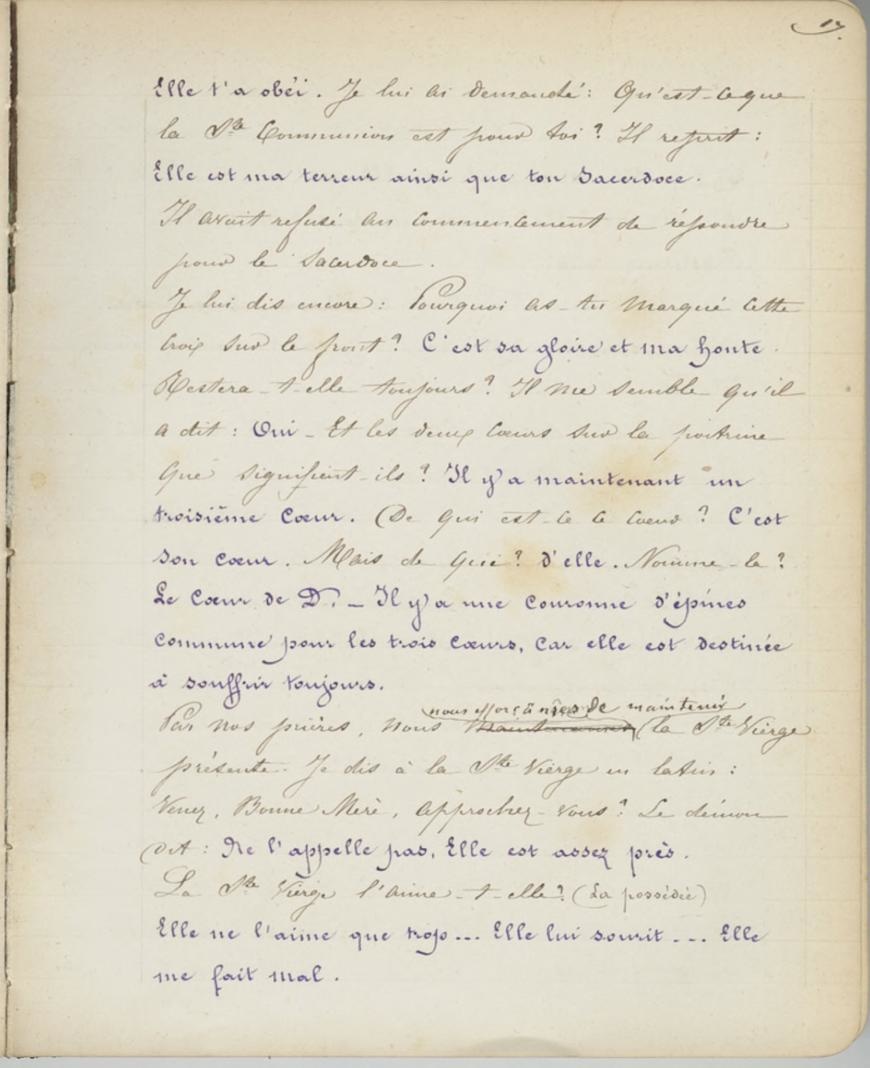 17.
Elle t'a obéi. Je lui ai demandé : Qu'est-ce que
la Ste Communion est pour toi ? Il reprit :
Elle est ma terreur ainsi que ton Sacerdoce.
Il avait refusé au commencement de répondre
pour le Sacerdoce.
Je lui dis encore : Pourquoi as-tu marqué cette
croix sur le front ? C'est sa gloire et ma honte.
Restera-t-elle toujours ? Il me semble qu'il
a dit : Oui _ Et les deux cœurs sur la poitrine
que signifient-ils ? Il y'a maintenant un
troisième Cœur. De qui est-ce ce cœur ? C'est
son cœur. Mais de qui ? d'elle. Nomme-la ?
Le Cœur de D. _ Il y'a une couronne d'épines
commune pour les trois cœurs, car elle est destinée
à souffrir toujours.
nous efforçâmes de maintenir
Par nos prières, nous la Ste Vierge
présente. Je dis à la Ste Vierge en latin :
Venez, Bonne Mère, approchez-vous ? Le démon
dit : Ne l'appelle pas, Elle est assez près.
La Ste Vierge l'aime-t-elle ? (La possédée)
Elle ne l'aime que trop... Elle lui sourit... Elle
me fait mal.